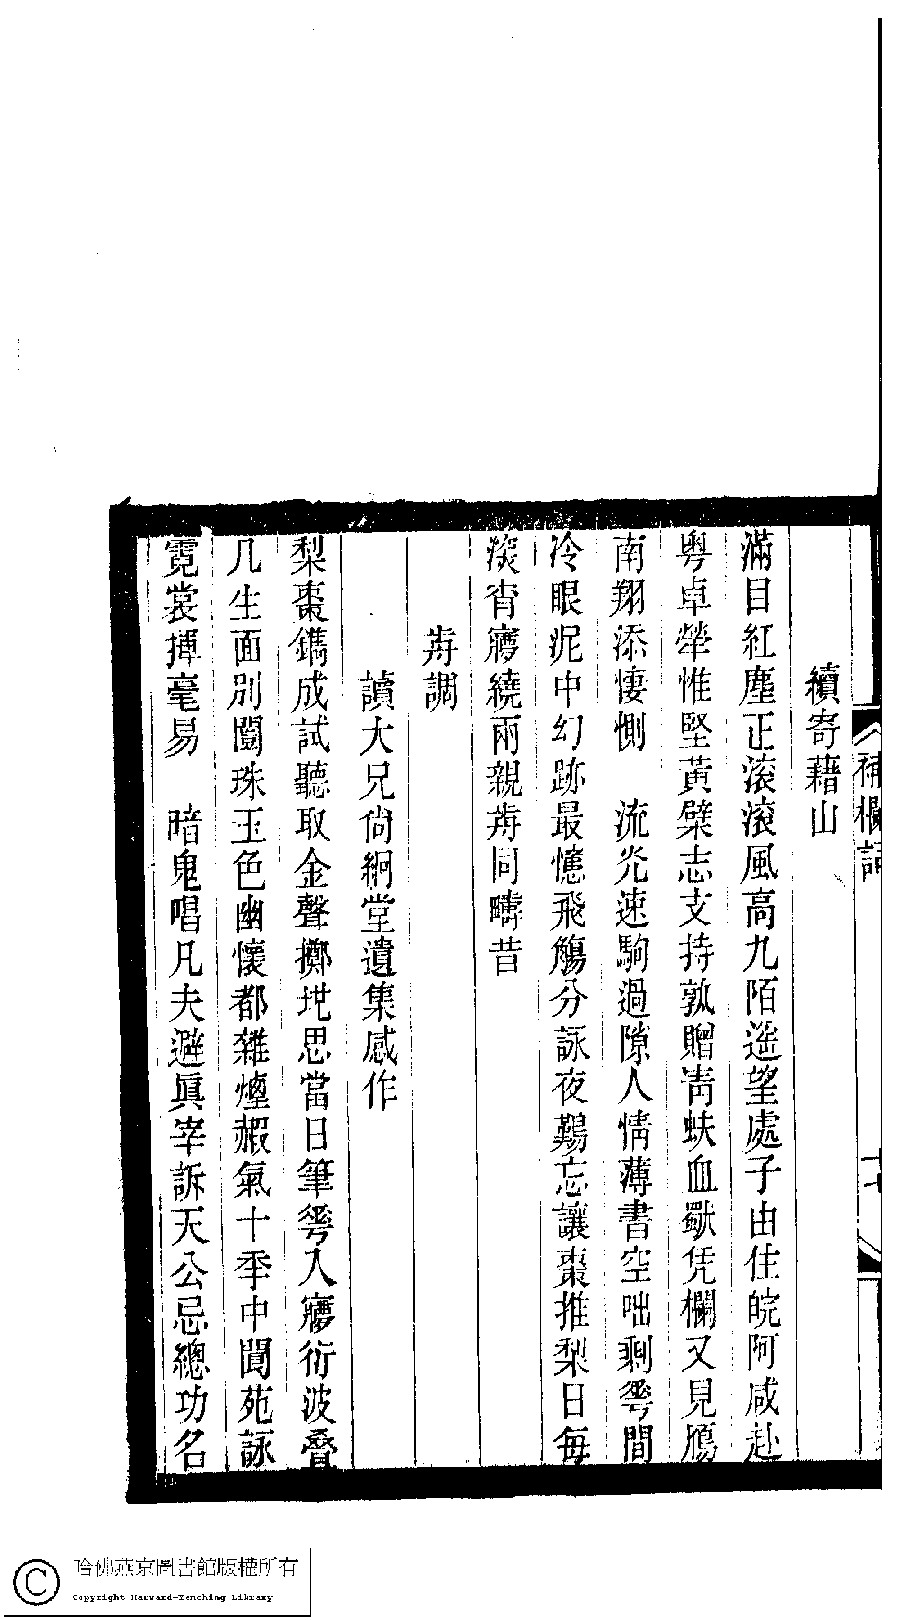 續寄藉山
滿目紅塵正滾滾風高九陌遙望處子由住皖阿咸赴
粤卓犖惟堅黃檗志支持孰贈靑蚨血歎凭欄又見鴈
南翔添悽惻　流光速駒過隙人情薄書空咄剩芲間
冷眼泥中幻跡最憶飛觴分詠夜難忘讓棗推梨日每
深宵㝱繞兩親歬同疇昔
歬調
讀大兄尙絅堂遺集感作
梨棗鐫成試聽取金聲擲地思當日筆芲入㝱衍波疊
几生面別闢珠玉色幽懷都雜煙霞氣十季中閬苑詠
霓裳揮毫易　暗鬼唱凡夫避眞宰訴天公忌總功名
補欄詞
哈佛燕京圖書館版權所有
Copyright Harvard-Yenching Library